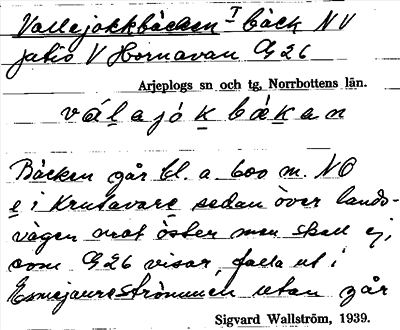 Vallejokkbäcken I bäck NV
Jutis V Hornavan G26
Arjeplogs sn och tg, Norrbottens län.
válajòkbäkan
Bäcken går bl. a 600 m. NO
i Krutavare sedan över lands-
vägen mot öster men skall ej,
som G26 visar, falla ut i
strömmen utan går
Sigvard Wallström, 1939.